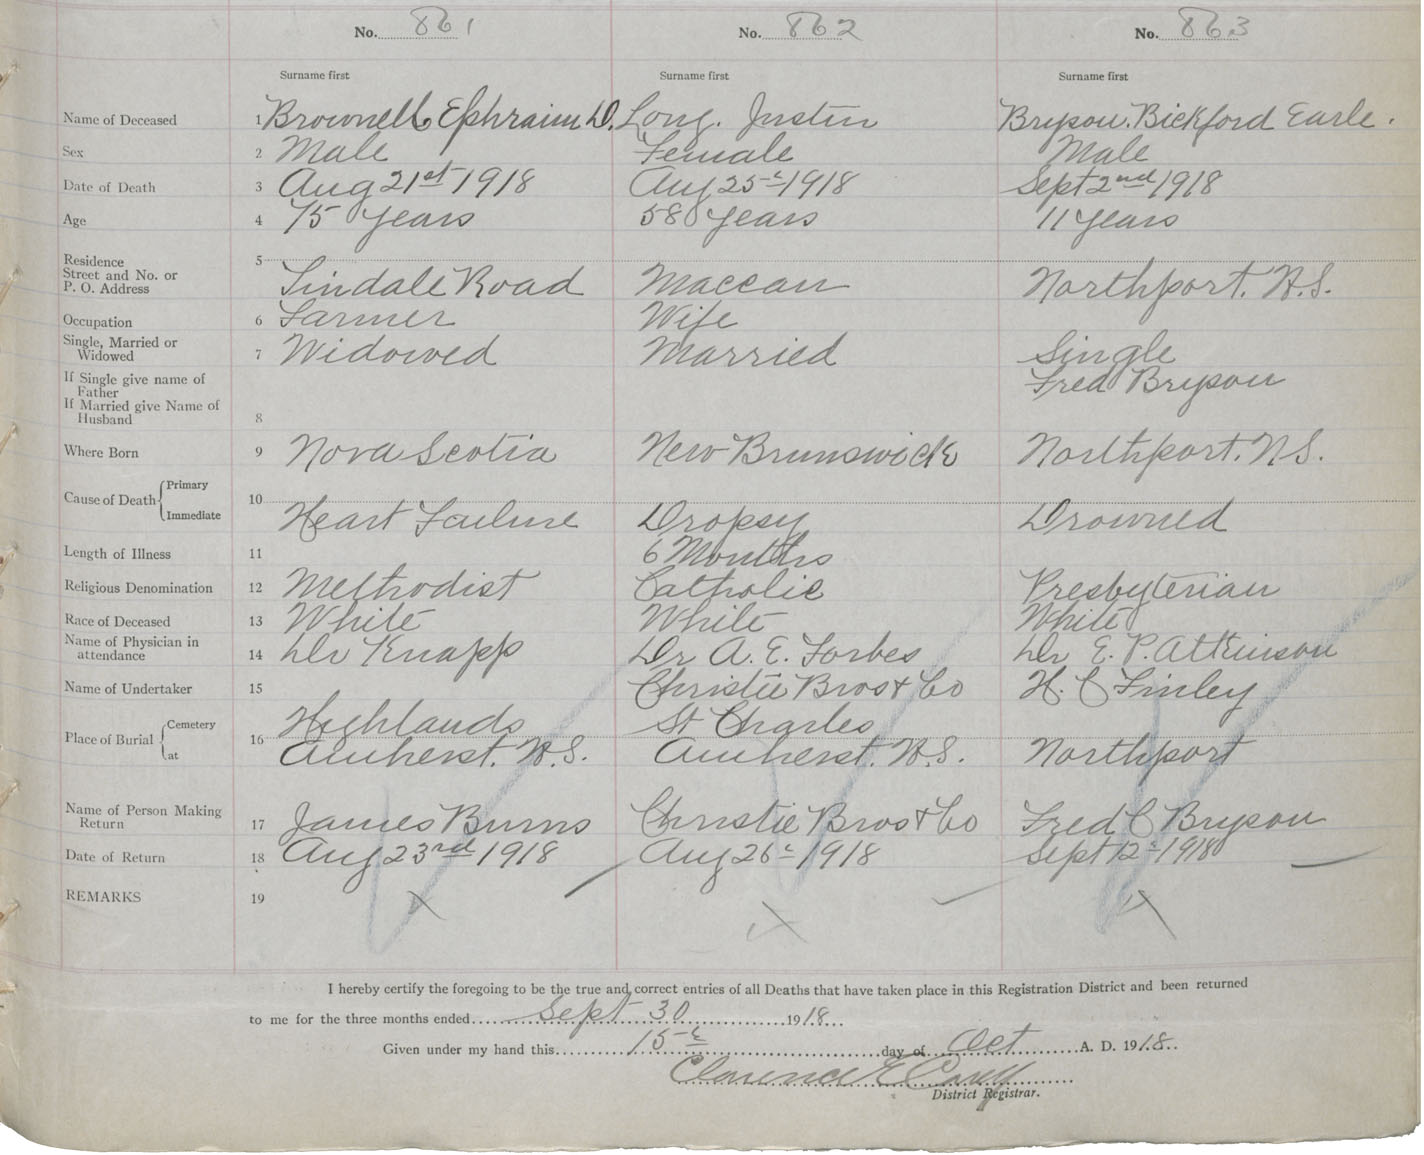 No. 861 No. 862 No. 863
Surname first Surname first Surname first
Name of Deceased 1 Brownell Ephraim D. Long. Justin Bryson. Bickford Earle.
Sex 2 Male Female Male
Date of Death 3 Aug 21st 1918 Aug 25th 1918 Sept 2nd 1918
Age 4 75 years 58 years 11 years
Residence 5
Street and No. or
P. O. Address Tindale Road Maccan Northport. N.S.
Occupation 6 Farmer Wife
Single, Married or
Widowed 7 Widowed Married Single
If Single give name of
Father Fred Bryson
If Married give Name of
Husband 8
Where Born 9 Nova Scotia New Brunswick Northport. N.S.
Cause of Death Primary 10
Immediate Heart Failure Dropsy Drowned
Length of Illness 11 6 Months
Religious Denomination 12 Methodist Catholic Presbyterian
Race of Deceased 13 White White White
Name of Physician in
attendance 14 Dr Knapp Dr A. E. Forbes Dr E. P. Atkinson
Name of Undertaker 15 Christie Bros & Co H. C Finley
Place of Burial Cemetery 16 Highlands St Charles
at Amherst. N.S. Amherst. N.S. Northport
Name of Person Making
Return 17 James Burns Christie Bros & Co Fred C Bryson
Date of Return 18 Aug 23rd 1918 Aug 26th 1918 Sept 12th 1918
REMARKS 19 X X X
I hereby certify the foregoing to be the true and correct entries of all Deaths that have taken place in this Registration District and been returned
to me for the three months ended Sept 30 1918
Given under my hand this 15th day of Oct A. D. 1918
Clarence E
District Registrar.